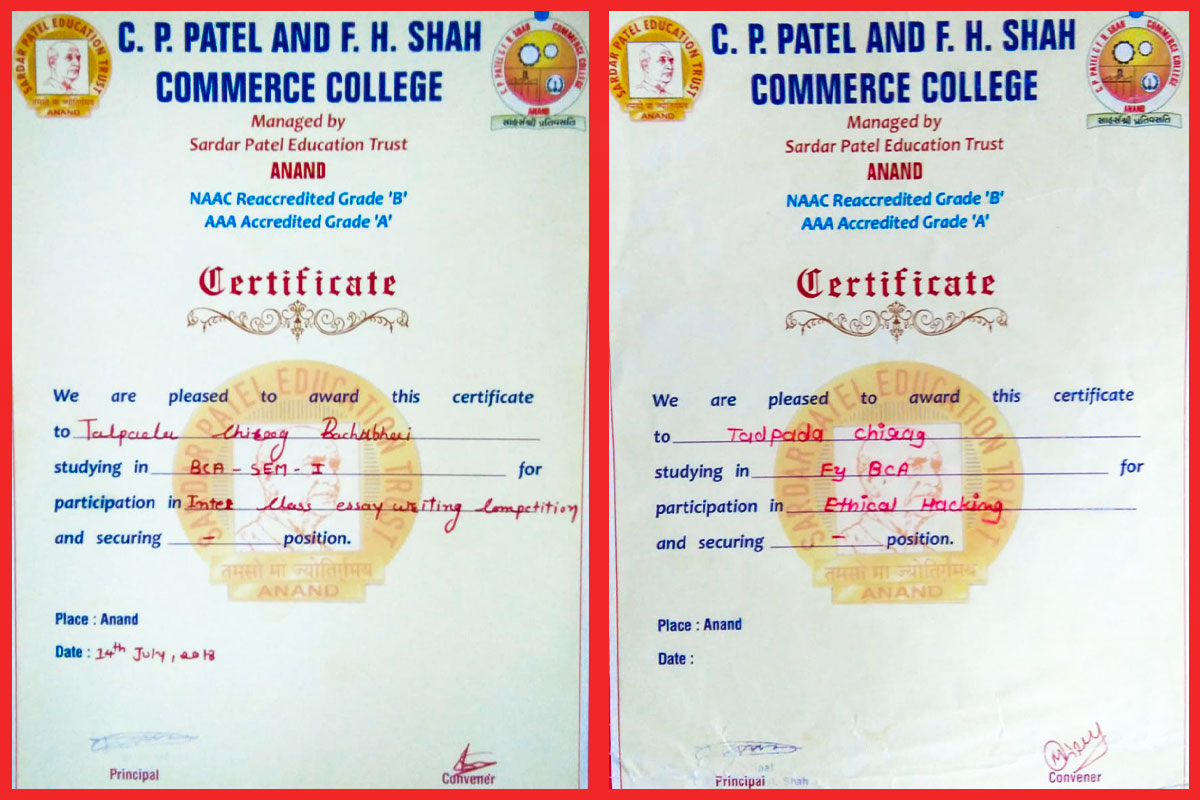 SARDAR PATEL EDUCATION TRUST
तमसो मा ज्योतिर्गमय
ANAND
C. P. PATEL AND F. H. SHAH
COMMERCE COLLEGE
C. P. PATEL & F. H. SHAH COMMERCE COLLEGE
ANAND
Managed by
Sardar Patel Education Trust
ANAND
NAAC Reaccredited Grade 'B'
AAA Accredited Grade 'A'
Certificate
SARDAR PATEL EDUCATION TRUST
We are pleased to award this certificate
to Talpada Chirag Bachubhai
studying in BCA - SEM - I for
participation in Inter Class essay writing Competition
and securing - position.
तमसो मा ज्योतिर्गमय
ANAND
Place : Anand
Date : 14th July, 2018
Principal
Convener
SARDAR PATEL EDUCATION TRUST
तमसो मा ज्योतिर्गमय
ANAND
C. P. PATEL AND F. H. SHAH
COMMERCE COLLEGE
C. P. PATEL & F. H. SHAH COMMERCE COLLEGE
ANAND
Managed by
Sardar Patel Education Trust
ANAND
NAAC Reaccredited Grade 'B'
AAA Accredited Grade 'A'
Certificate
SARDAR PATEL EDUCATION TRUST
We are pleased to award this certificate
to Tadpada chirag
studying in Fy BCA for
participation in Ethical Hacking
and securing - position.
तमसो मा ज्योतिर्गमय
ANAND
Place : Anand
Date :
Principal
Shah
Convener